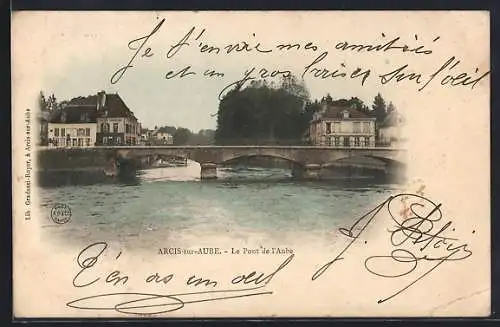 Je t'envoie mes amitiés
et un gros baiser sur l'oeil
Lib. Gradassi-Royer, à Arcis-sur-Aube
ARCIS-sur-AUBE. - Le Pont de l'Aube
T'en as un oeil